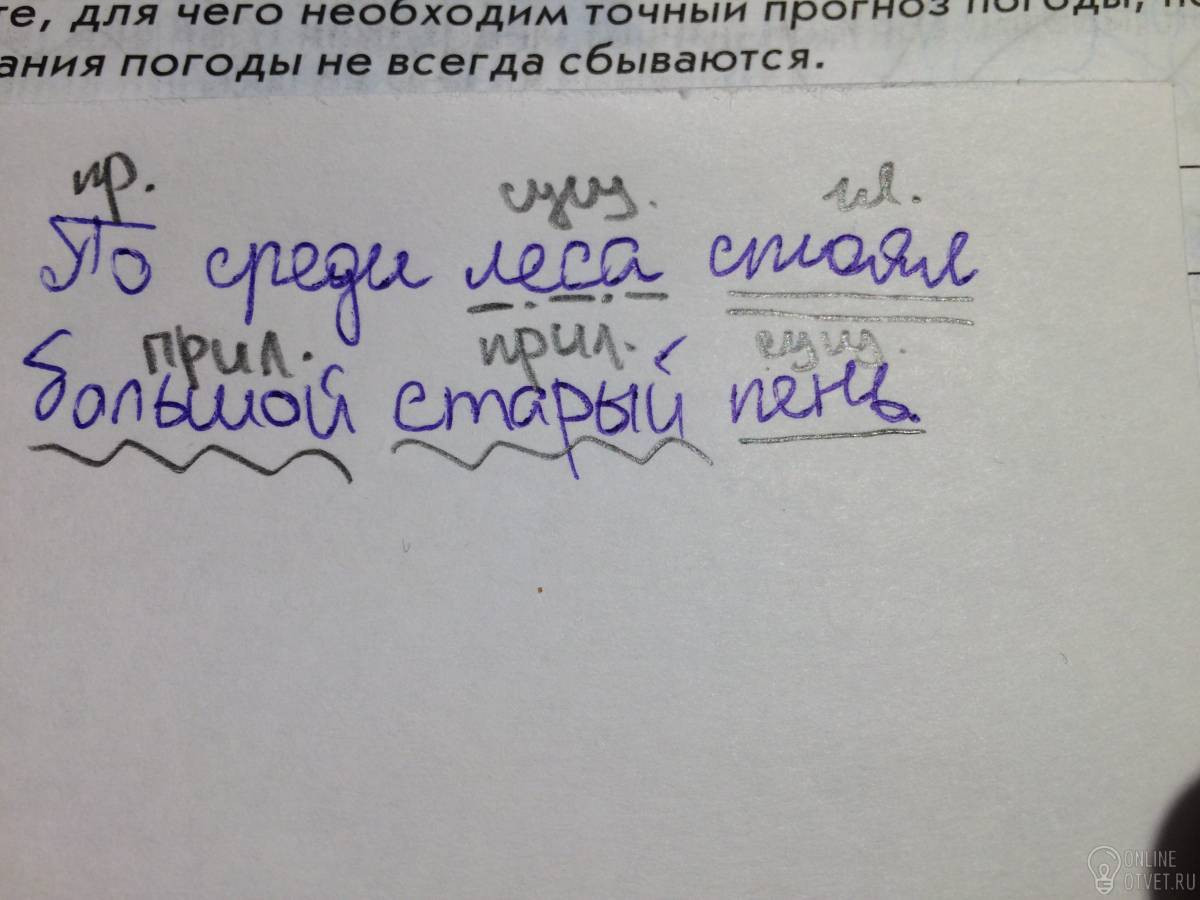 те, для чего необходим точный прогноз погоды,
ания погоды не всегда сбываются.
пр. сущ. гл.
По среди леса стоял
прил. прил. сущ.
большой старый пень.
ONLINE
OTVET.RU